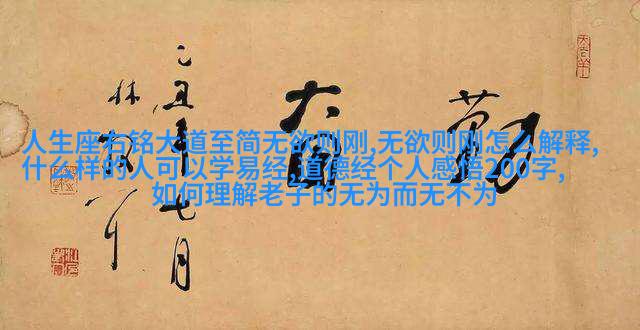 勤
乙丑年七月
人生座右铭大道至简无欲则刚,无欲则刚怎么解释,
什么样的人可以学易经,道德经个人感悟200字,
如何理解老子的无为而无不为